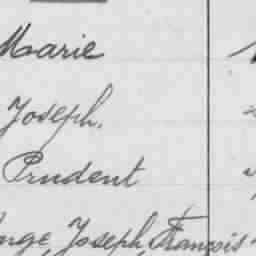 Marie
Joseph.
Prudent
Joseph, François